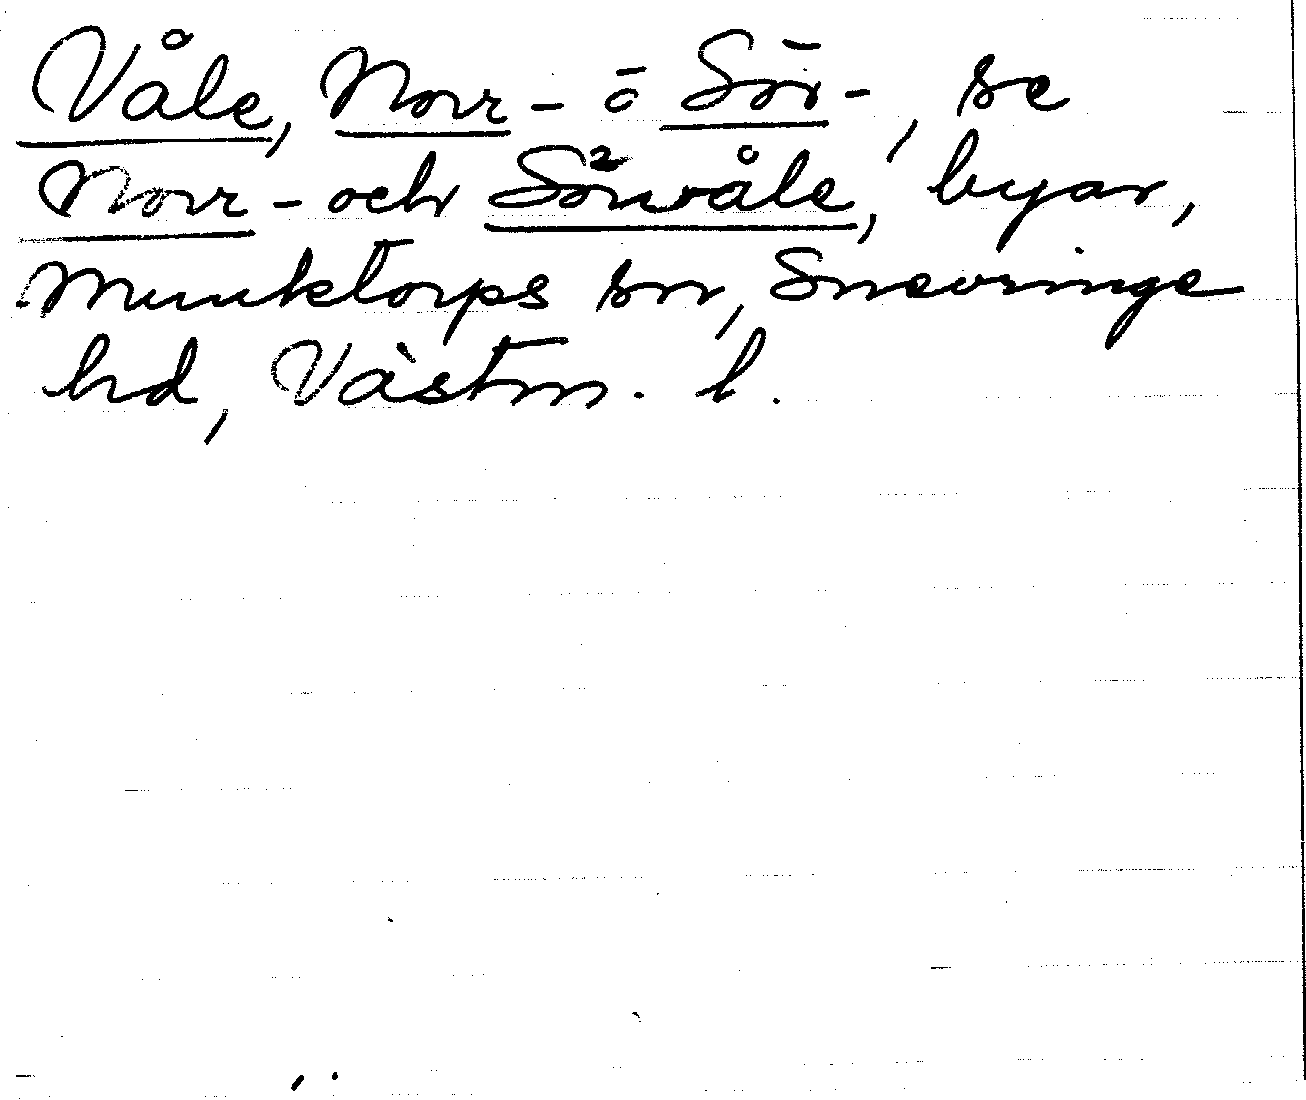 Våle, Norr- o Sör-, se
Norr- och Sörvåle, byar,
Munktorps sn, Snevringe
hd, Västm. l.